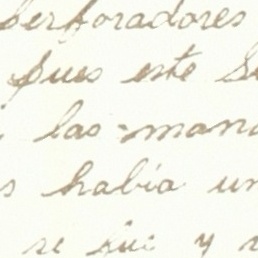 perforadores
pues este S
las mano
s había un
se fue y